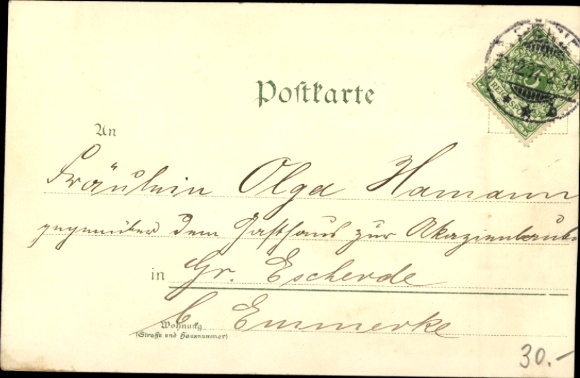 Postkarte
5
An
Fräulein Olga Hamann
gegenüber dem Gasthaus zur Akazienlaube
in Gr. Escherde
b. Emmerke
Wohnung
(Straße und Hausnummer)
30.-